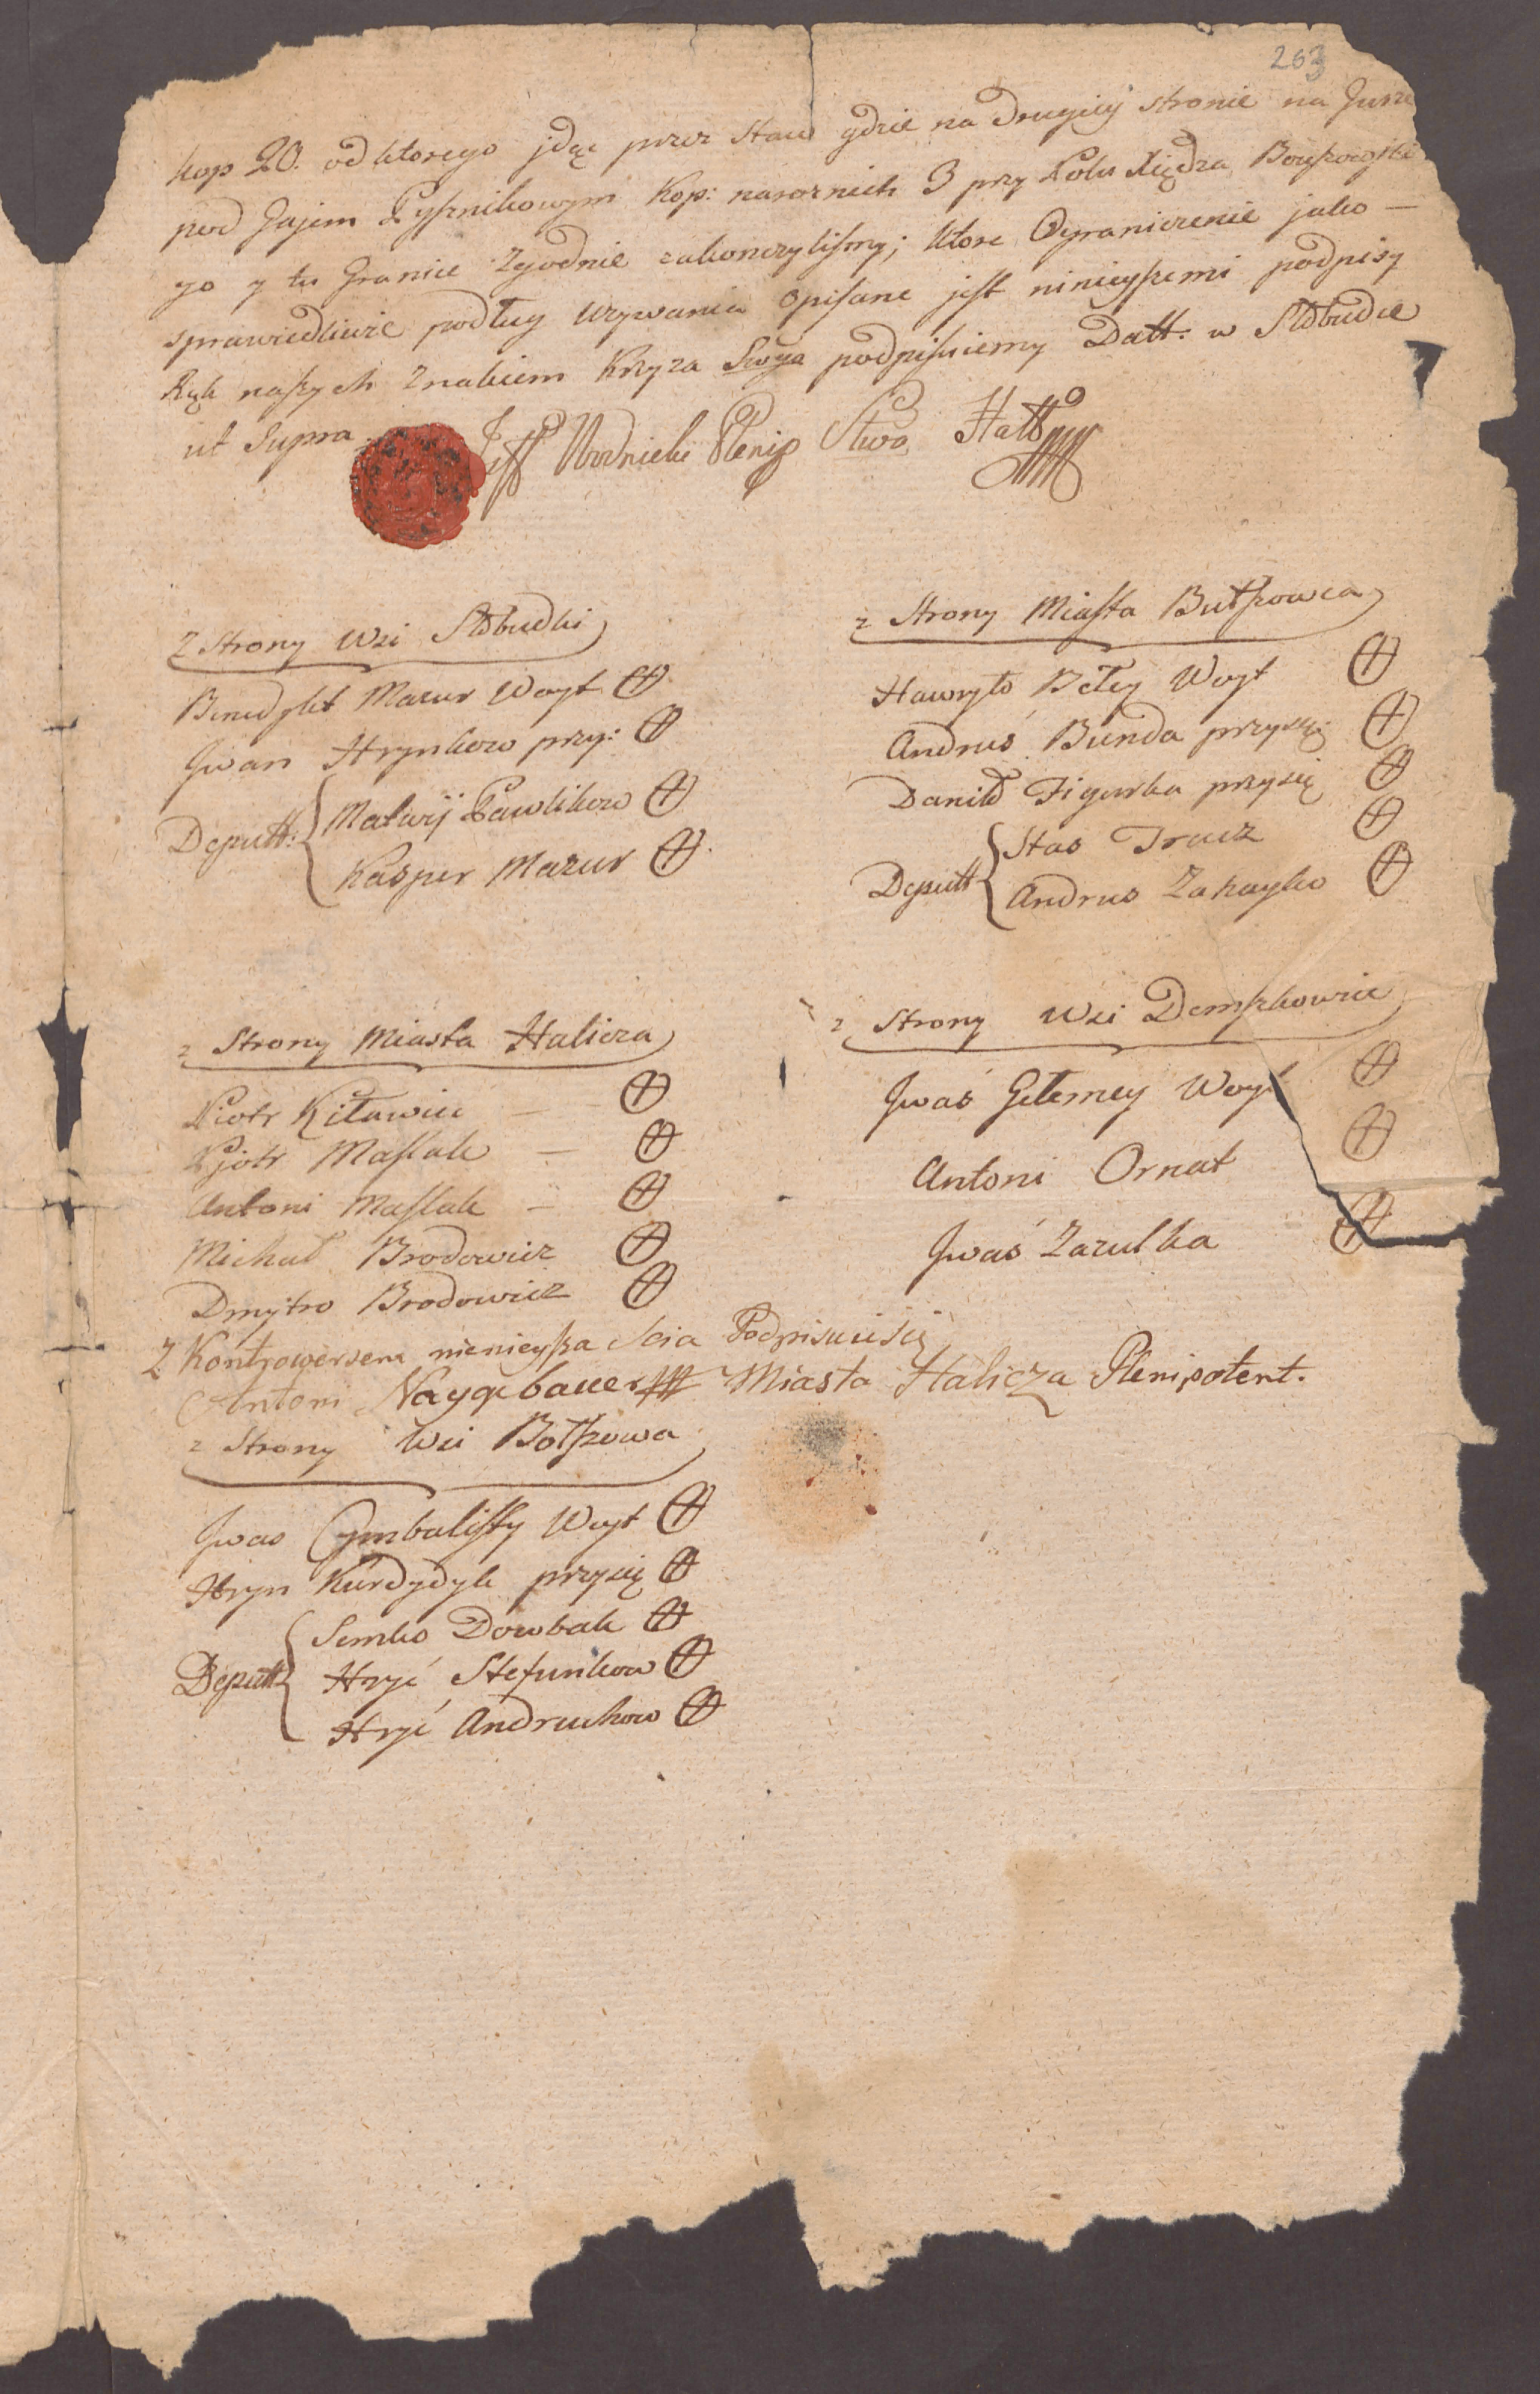 203
kop 20. od ktorego jdąc przez Staw gdzie na drugiey stronie na
pod Gajem Pysznikowym Kop: narożnich 3 przy Polu Xiędza
go y tu Granice Zgodnie zakonczylismy; ktore Ograniczenie jako —
sprawiedliwie podług Uzywania opisane jest ninieyszemi podpisy
Rąk naszych Znakiem Krzyza Swga podpisuiemy Datt: w Słobudce
ut Supra
Plenip Stwa Hall
Z Strony Wsi Słobudki
Benedykt Mazur Woyt
Jwan Hrynkow przy:
Deputt:
Matwij Pawlikow
Kasper Mazur
z Strony Miasta Butszowca
Hawryło Bełey Woyt
Andrus Bunda przysię:
Daniło Figurka przysię
Deputt
Stas Tracz
Andrus Zahayko
z Strony Miasta Halicza
Piotr Kiławiec —
Pjotr Maslak —
Antoni Maslak —
Michał Brodowicz
Dmytro Brodowicz
z Strony Wsi Demszkowice
Jwaś Gełemey Woyt
Antoni Ornat
Jwaś Zazulka
Z Kontrowersem nienieysza Podpisuie się
Antoni Naygebauer Miasta Halicza Plenipotent.
z Strony Wsi Botszowa
Jwas Cymbalisty Woyt
Hryn Kurdydyk przysię
Deputt
Semko Dowbak
Hryć Stefunkow
Hryć Andruchow